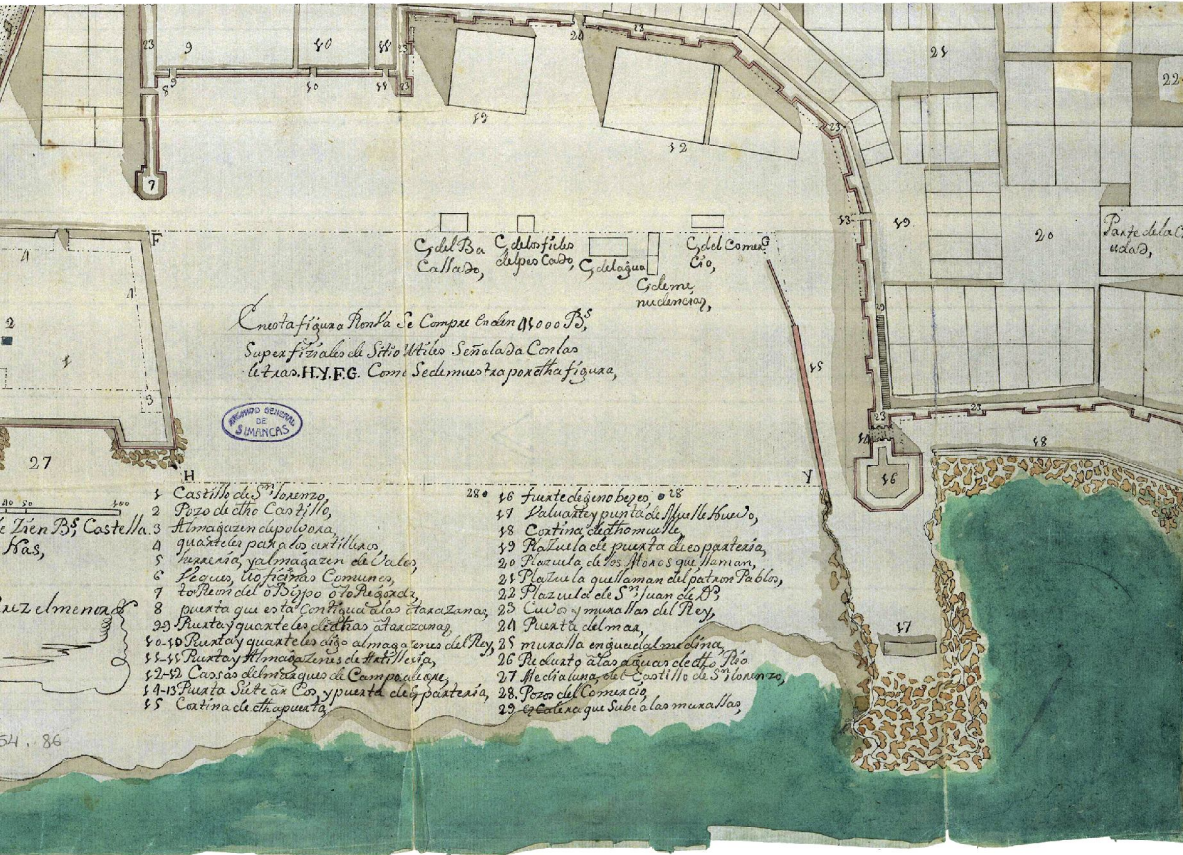 23
9
10
11
23
20
23
21
22
8
9
10
11
19
12
23
7
13
19
20
Parte de la C
iudad,
F
G
4
4
2
1
3
C. del Ba
Callado,
C. de los fieles
del pes Cado,
C. del agua
C. de me
nudencias,
C. del Comer
Cio,
En esta figura Ronsa Se Compre enden 41000 Bs,
Superfiziales de Sitio Utiles Señalada Con las
letras, H.Y.F.G. Como Se demuestra por dha figura,
ARCHIVO GENERAL
DE
SIMANCAS
15
23
23
14
16
18
27
H
Y
28
28
50
100
e Zien Bs, Castella
Nas,
rez el menor
54. 86
1 Castillo de Sn. lorenzo,
2 Pozo de dho Castillo,
3 Almagazen de polvora,
4 quarteles para los artilleros,
5 herreria, y almagazen de Valas,
6 Veques, u oficinas Comunes,
7 torreon del obispo o la Regorda,
8 puerta que esta Contigua a las atarazanas,
9-9 Puerta y quarteles de dhas atarazanas,
10-10 Puerta y quarteles digo almagazenes del Rey,
11-11 Puerta y Almagazenes de Artilleria,
12-12 Cassas del marques de Campo de are,
14-13 Puerta Siete ar Cos, y puerta de esparteria,
15 Cortina de dha puerta,
16 fuerte de ginobezes,
17 Valuarte y punta de Muelle Nuevo,
18 Cortina de dho muelle,
19 Plazuela de puerta de esparteria,
20 Plazuela de los Moros que llaman,
21 Plazuela que llaman del patron Pablos,
22 Plazuela de Sn. Juan de D.
23 Cuvos y murallas del Rey,
24 Puerta del mar,
25 muralla en guadalmedina,
26 Reducto a las aguas de dho Rio
27 Media luna, del Castillo de Sn. lorenzo,
28. Pozos del Comercio,
29 esCalera que Sube a las murallas,
17